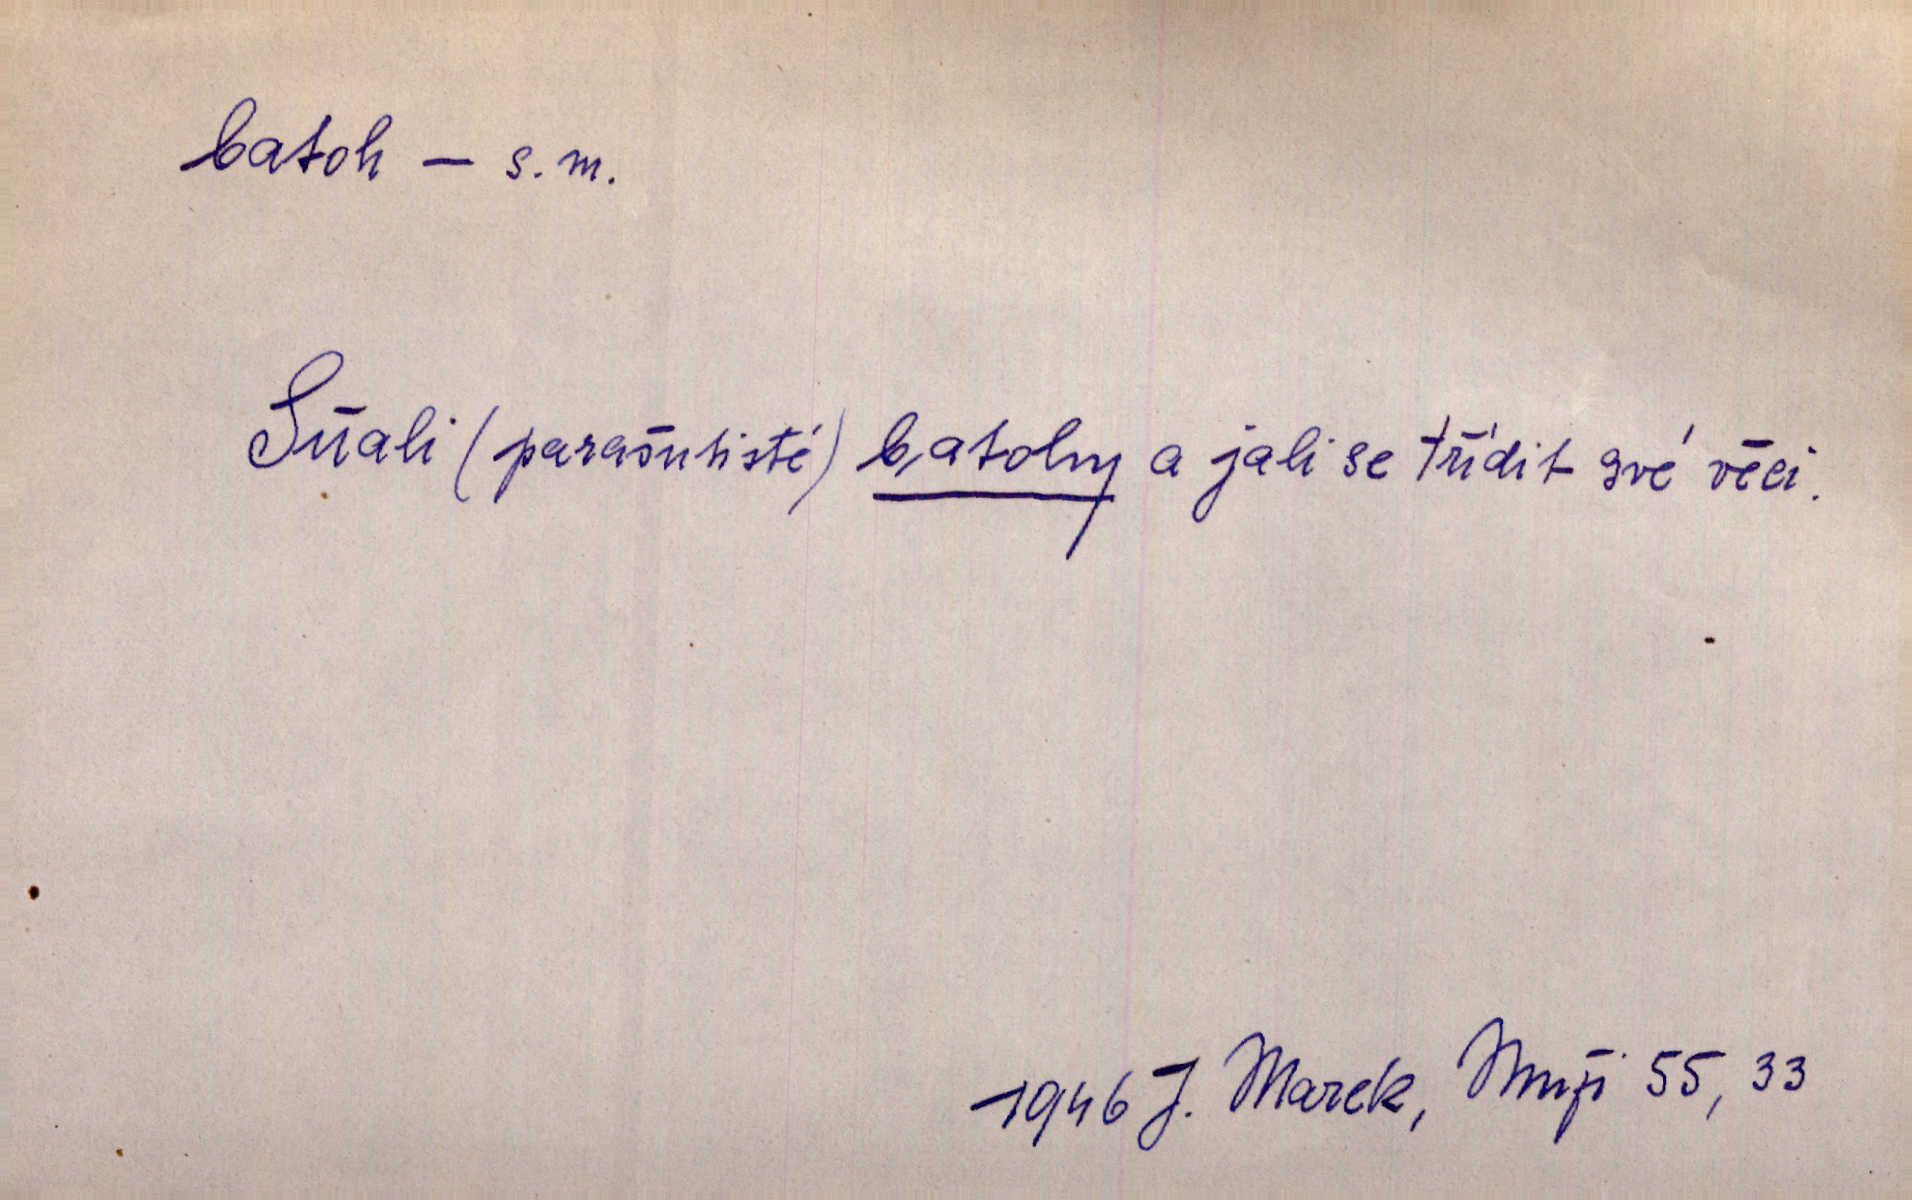 batoh – s. m.
Sňali (parašutisté) batohy a jali se třídit své věci.
1946 J. Marek, Muži 55, 33